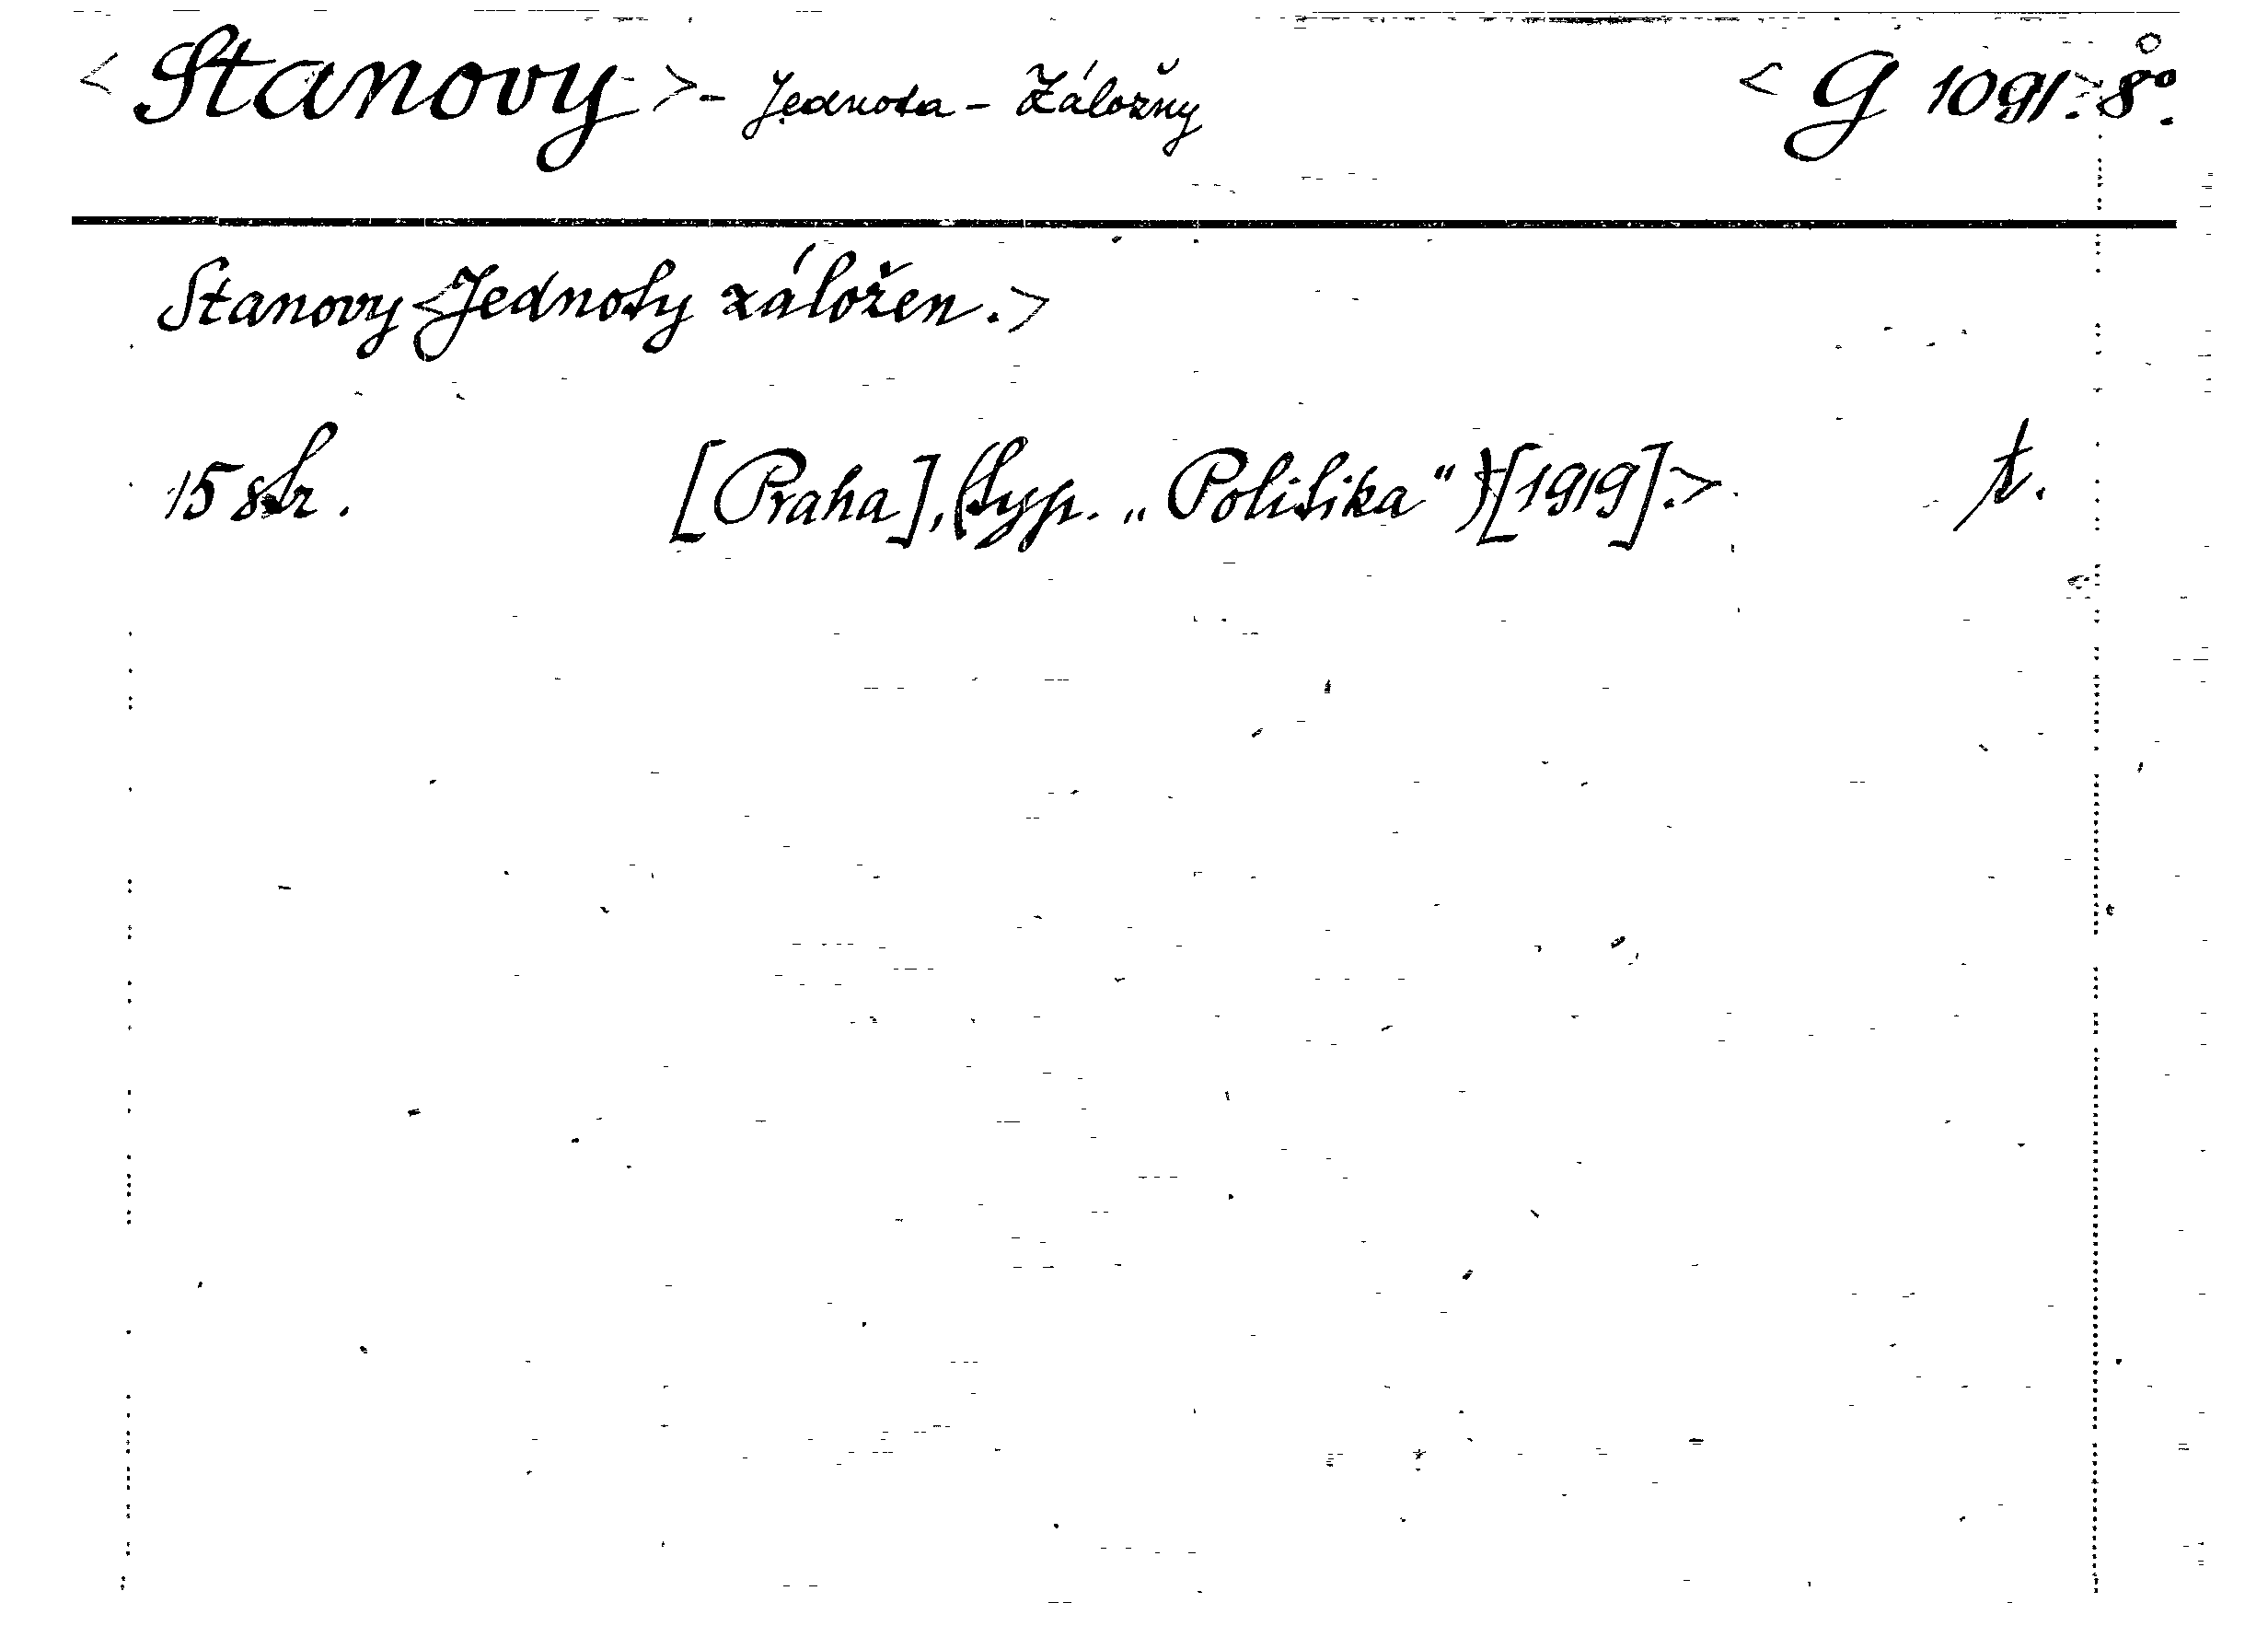 <Stanovy>- Jednota - Záložny <G 1091.>8°.
Stanovy <Jednoty záložen.>
15 str. [Praha], (typ. „Politika") [1919].> t.